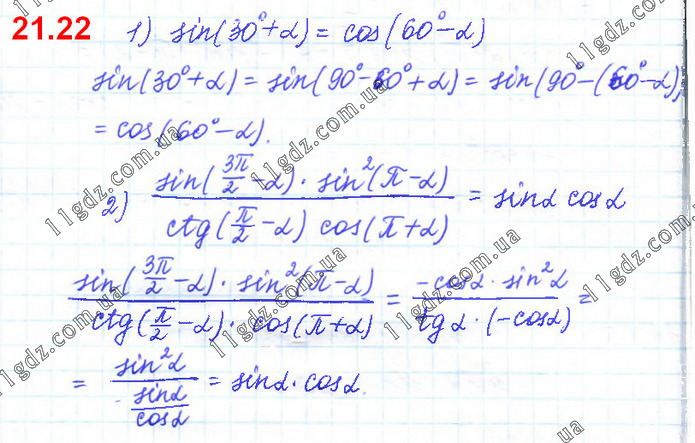 21.22
1) sin(30°+α) = cos(60°-α)
sin(30°+α) = sin(90°-60°+α) = sin(90°-(60°-α)) =
= cos(60°-α).
2) \frac{sin(\frac{3π}{2}-α) · sin²(π-α)}{ctg(\frac{π}{2}-α) cos(π+α)} = sinα cosα
\frac{sin(\frac{3π}{2}-α) · sin²(π-α)}{ctg(\frac{π}{2}-α) · cos(π+α)} = \frac{-cosα · sin²α}{tgα · (-cosα)} =
= \frac{sin²α}{\frac{sinα}{cosα}} = sinα · cosα.
11gdz.com.ua
11gdz.com.ua
11gdz.com.ua
11gdz.com.ua
11gdz.com.ua